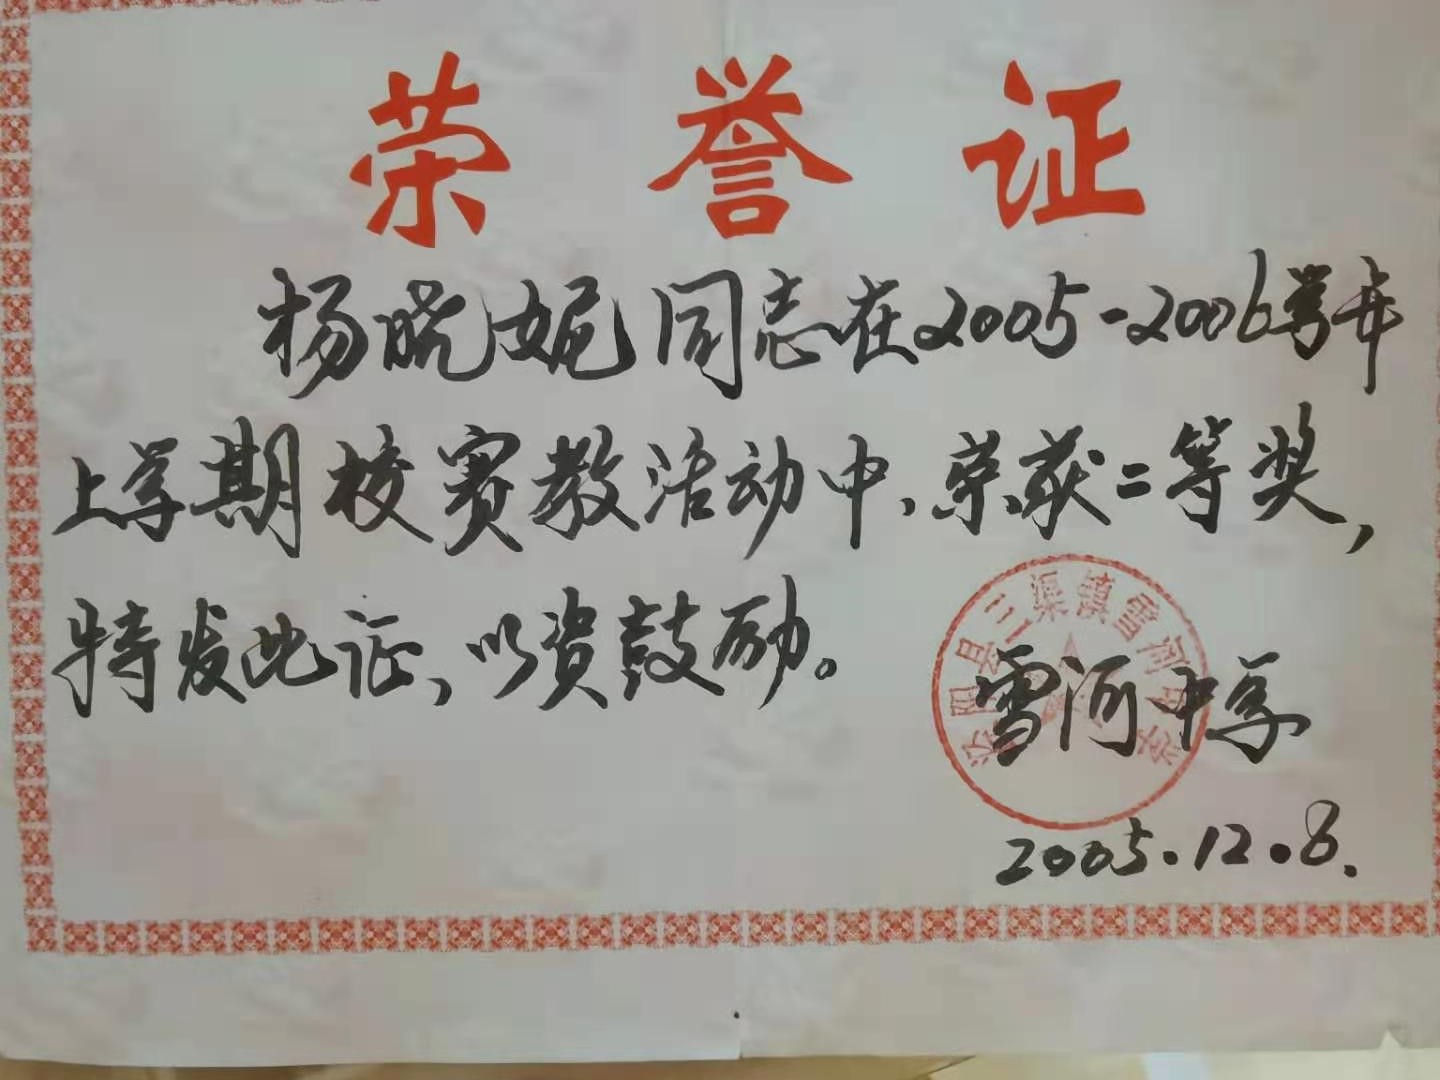 荣誉证
杨晓妮同志在2005-2006学年
上学期校赛教活动中、荣获二等奖,
特发此证,以资鼓励。
泾阳县三渠镇雪河中学
雪河中学
2005.12.8.